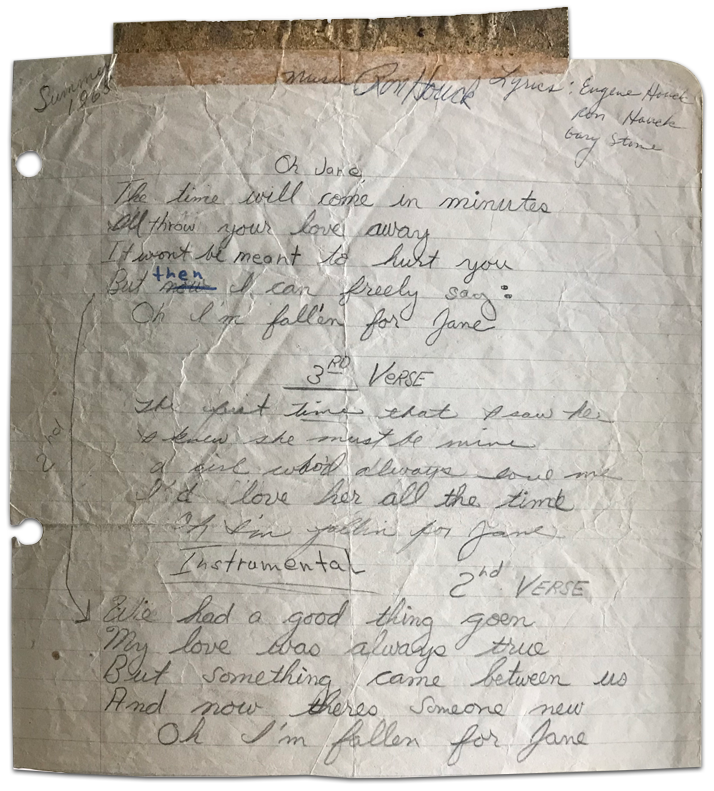 Summer
1965
Music Ron Houck Lyrics: Eugene Houck
Ron Houck
Gary Stone
Oh Jane
The time will come in minutes
I'll throw your love away
It wont be meant to hurt you
then
But now I can freely say:
Oh I'm fallen for Jane
3RD VERSE
The first time that I saw her
I knew she must be mine
a girl who'd always love me
I'd love her all the time
Oh I'm fallin for Jane
Instrumental
2nd VERSE
2nd
had a good thing goen
My love was always true
But something came between us
And now theres someone new
Oh I'm fallen for Jane